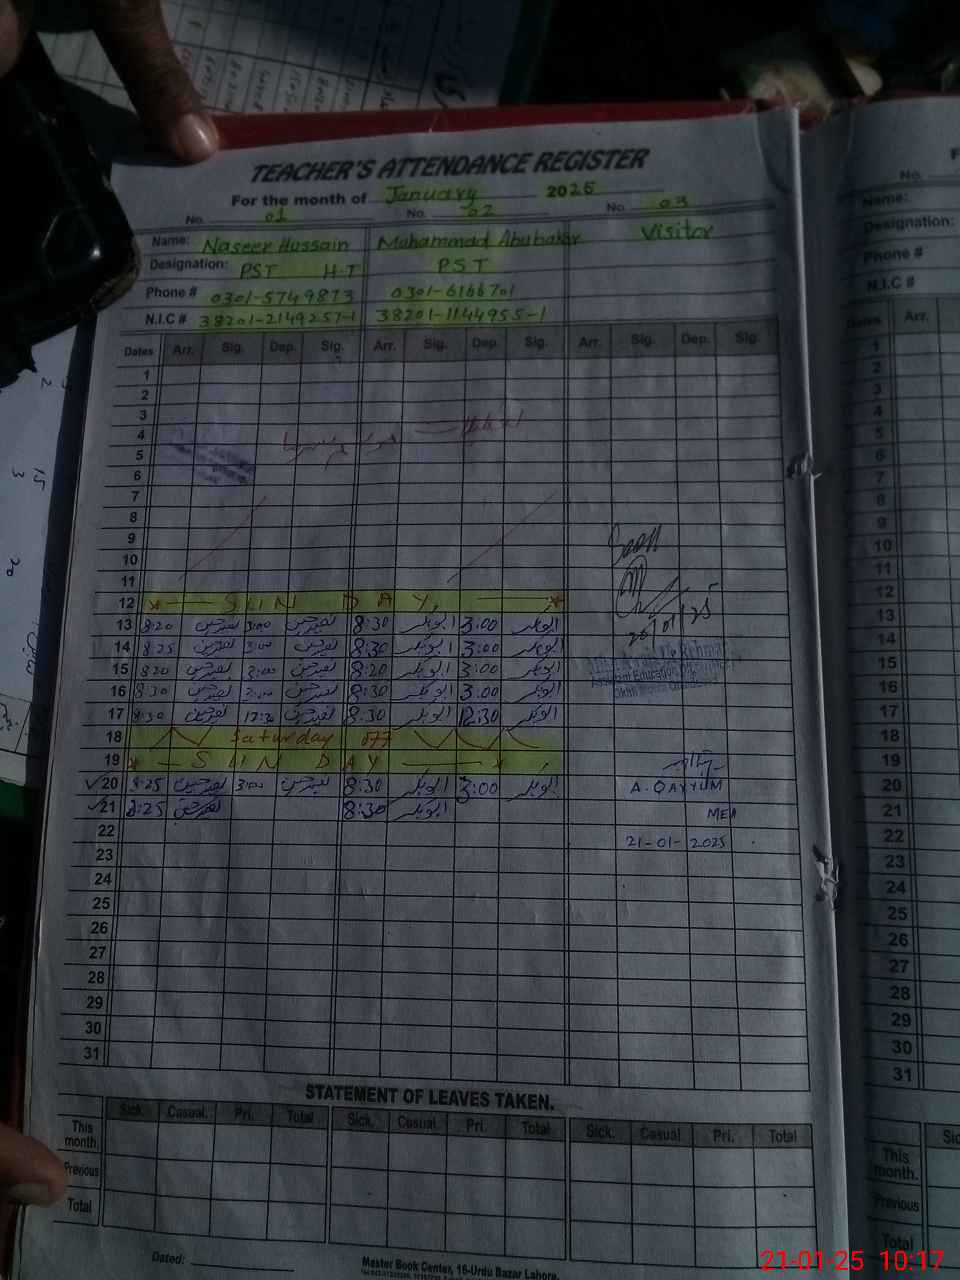 TEACHER'S ATTENDANCE REGISTER
For the month of January 2025
No. 01 No. 02 No. 03
Name: Naseer Hussain Muhammad Abubakar Visitor
Designation: PST H.T PST
Phone # 0301-5749873 0301-6166701
N.I.C # 38201-2149257-1 38201-1144955-1
Dates Arr. Sig. Dep. Sig. Arr. Sig. Dep. Sig. Arr. Sig. Dep. Sig.
1
2
3
4
5
6
7
8
9
10
11
Seen
12 SUN DAY
20/01/25
13 8:20 3:00 8:30 ابوبکر 3:00 ابوبکر
14 8:25 3:00 8:30 ابوبکر 3:00 ابوبکر
15 8:20 3:00 8:20 ابوبکر 3:00 ابوبکر
16 8:30 3:00 8:30 ابوبکر 3:00 ابوبکر
17 8:30 12:30 8:30 ابوبکر 12:30 ابوبکر
18 Saturday off
19 SUN DAY
20 8:25 3:00 8:30 ابوبکر 3:00 ابوبکر A. QAYYUM
21 8:25 8:30 ابوبکر MEA
22 21-01-2025
23
24
25
26
27
28
29
30
31
STATEMENT OF LEAVES TAKEN.
Sick. Casual. Pri. Total Sick. Casual. Pri. Total Sick. Casual Pri. Total
This month.
Previous
Total
Dated:
Master Book Center, 16-Urdu Bazar Lahore.
No.
Name:
Designation:
Phone #
N.I.C #
Dates Arr.
1
2
3
4
5
6
7
8
9
10
11
12
13
14
15
16
17
18
19
20
21
22
23
24
25
26
27
28
29
30
31
This month.
Previous
Total
21-01-25 10:17